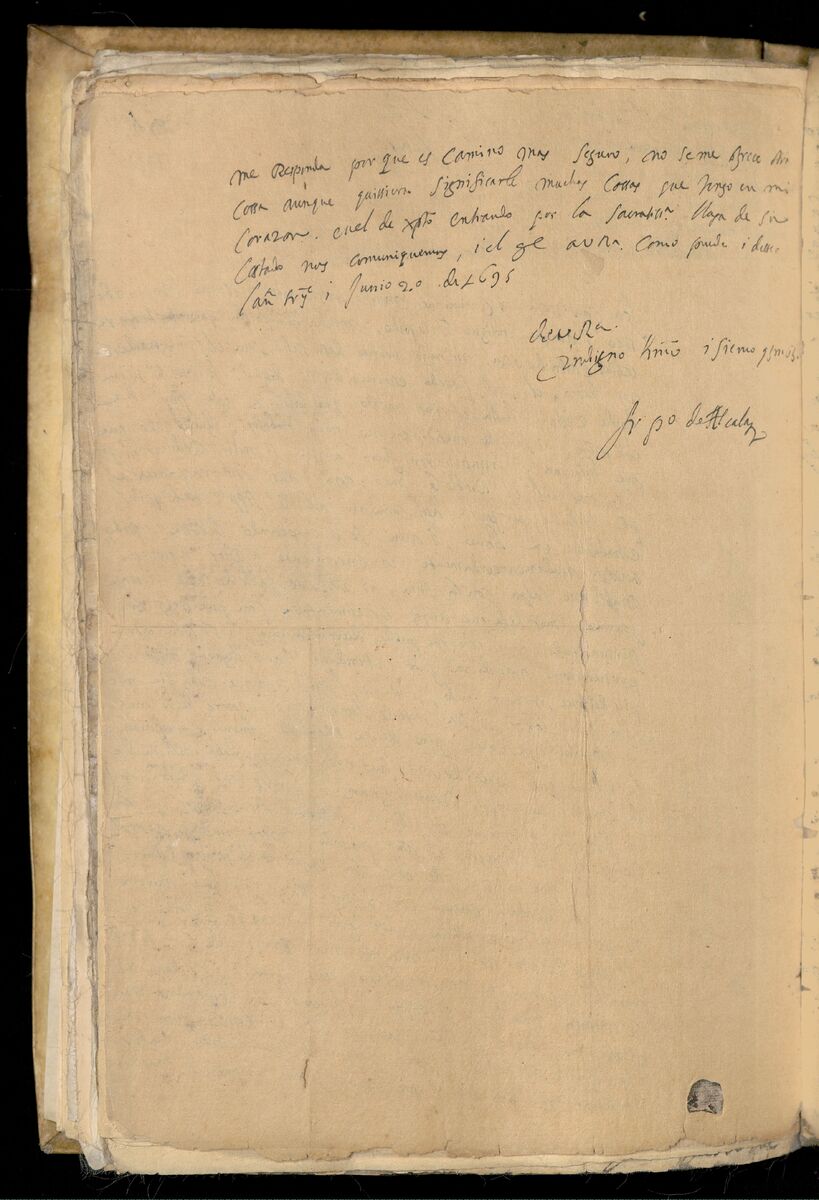 me Responda por que es Camino mas seguro; no se me ofrece otra
Cossa aunque quissiera significarle muchas Cossas que tengo en mi
Corazon. en el de xpto entrando por la Sacratissa. llaga de su
Costado nos comuniquemos, i el ge a v Ra. Como puede i desseo
i Junio 20 de 1695
de v Ra.
indigno hno i siervo
fr po de Alcala